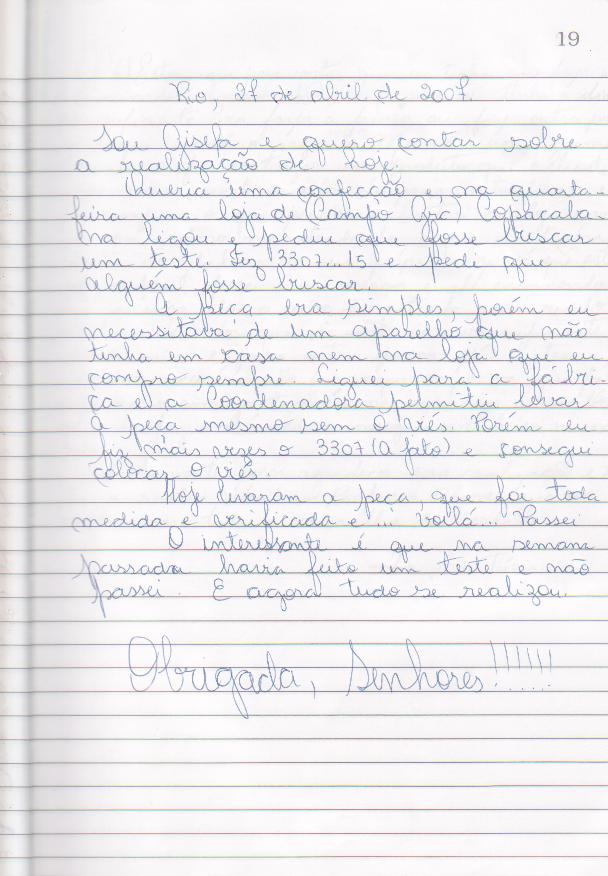 19
Rio, 27 de abril de 2007.
Sou Gisefa e quero contar sobre
a realização de hoje.
Queria uma confecção e, na quarta-
feira uma loja de (Campo Gr) Copacaba-
na ligou e pediu que fosse buscar
um teste. Fiz 3307...15 e pedi que
alguém fosse buscar.
A peça era simples, porém eu
necessitava de um aparelho que não
tinha em casa nem na loja que eu
compro sempre. Liguei para a fábri-
ca e a Coordenadora permitiu levar
a peça mesmo sem o viés. Porém eu
fiz mais vezes o 3307 (a fato) e consegui
colocar o viés.
Hoje levaram a peça, que foi toda
medida e verificada e... voilá... Passei
O interessante é que na semana
passada havia feito um teste e não
passei. E agora tudo se realizou.
Obrigada, Senhores!!!!!!